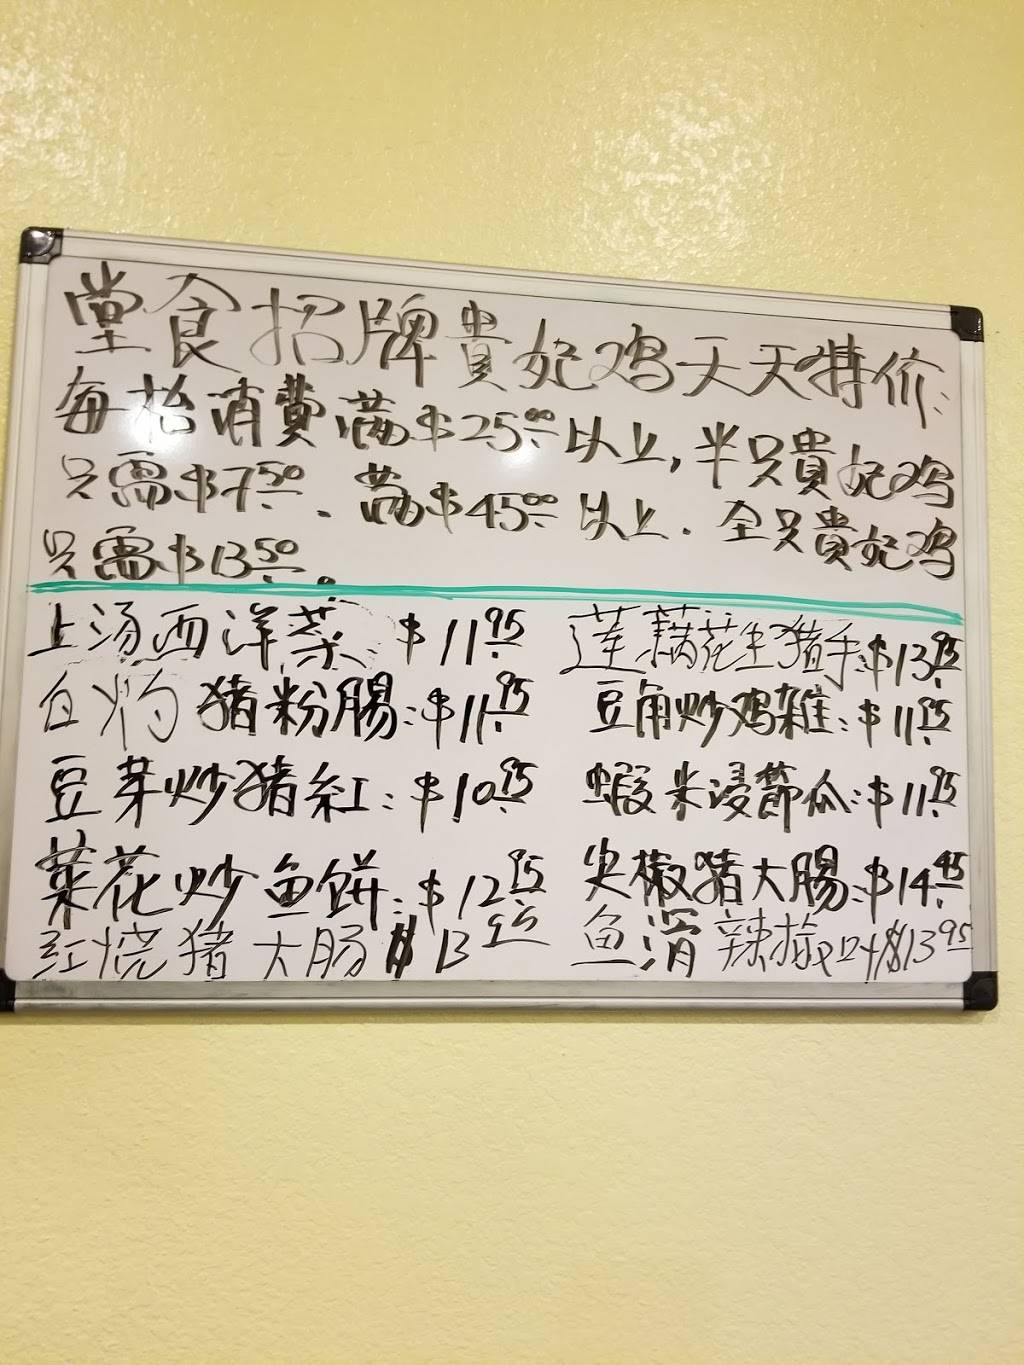 堂食招牌貴妃鸡天天特价:
每抬消費满$25.00以上,半只貴妃鸡
只需$7.50.满$45.00以上.全只貴妃鸡
只需$13.50。
上汤西洋菜:$11.95
莲藕花生猪手:$13.95
白灼猪粉腸:$11.95
豆角炒鸡雜:$11.95
豆芽炒猪紅:$10.95
蝦米浸節瓜:$11.95
菜花炒鱼餅:$12.95
尖椒猪大腸:$14.45
红烧猪大肠$13
鱼滑辣椒 $13.95